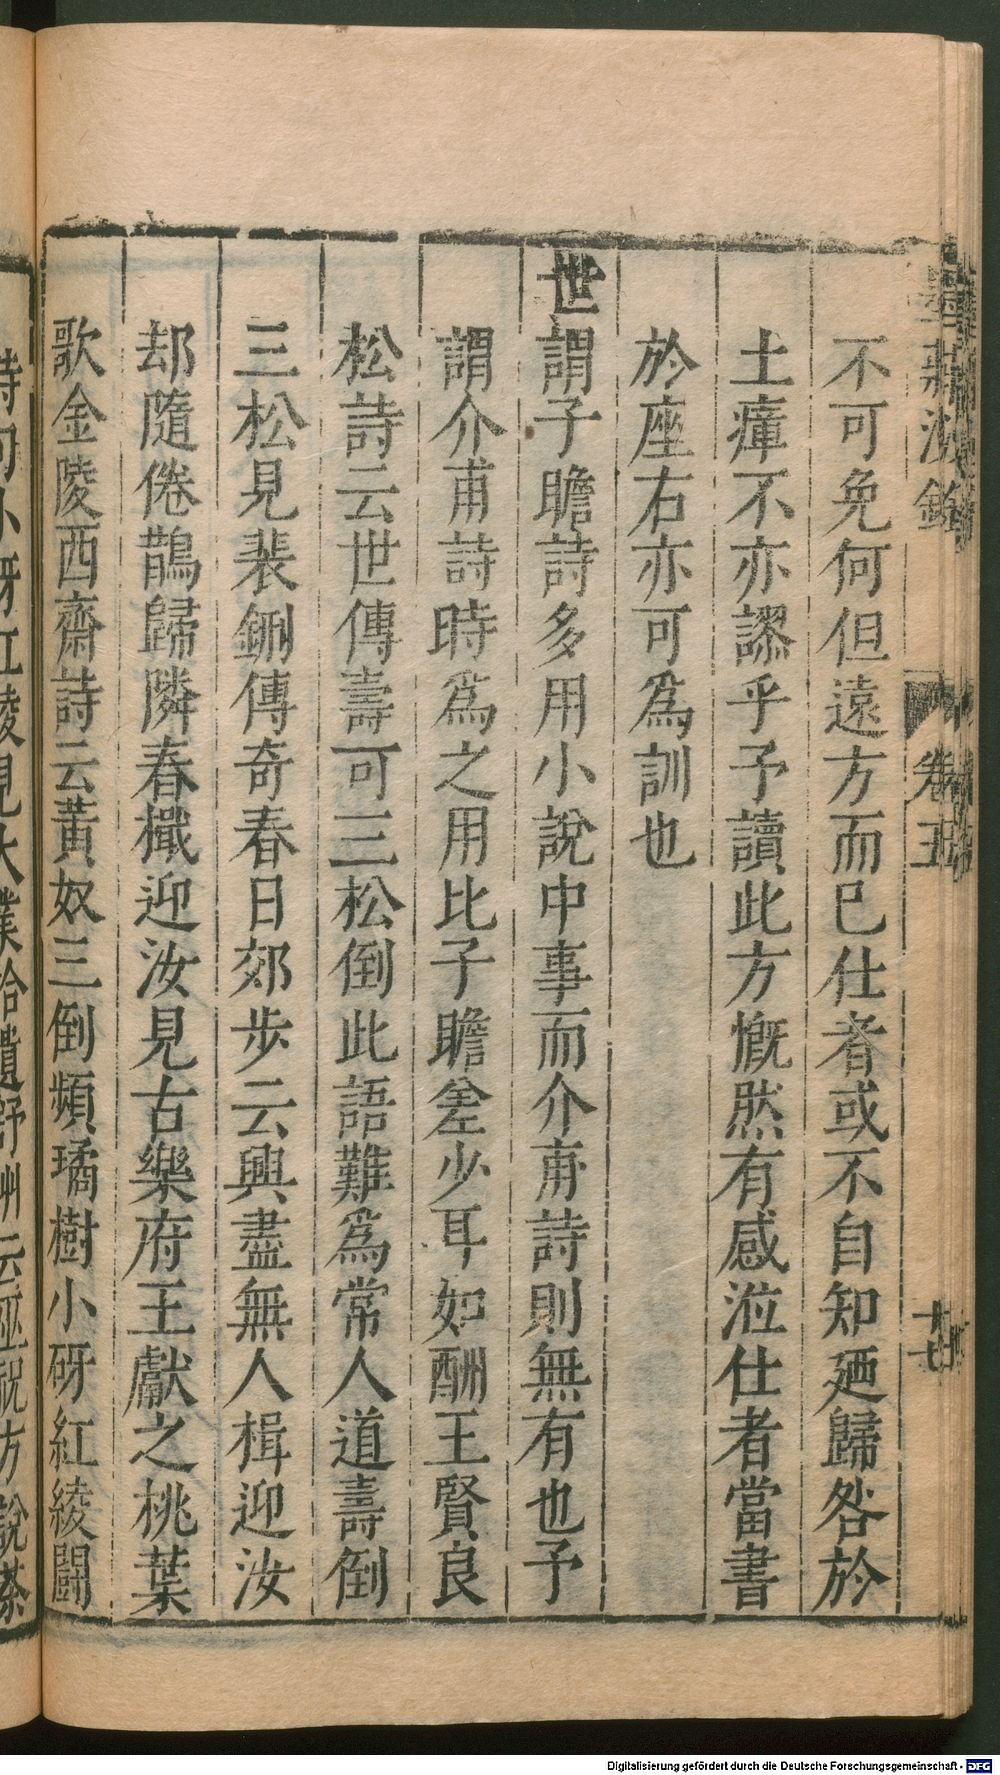 不可免何但遠方而已仕者或不自知廼歸咎於
土瘴不亦謬乎予讀此方慨然有感涖仕者當書
於座右亦可爲訓也
世謂子瞻詩多用小說中事而介甫詩則無有也予
謂介甫詩時爲之用比子瞻差少耳如酬王賢良
松詩云世傳壽可三松倒此語難爲常人道壽倒
三松見裴鉶傳奇春日郊步云興盡無人楫迎汝
却隨倦鵲歸隣春檝迎汝見古樂府王獻之桃葉
歌金陵西齋詩云黃奴三倒頻璚樹小砑紅綾鬭
詩句小砑紅綾見大業拾遺舒州云巫祝方說
卷五
十七
Digitalisierung gefördert durch die Deutsche Forschungsgemeinschaft - DFG